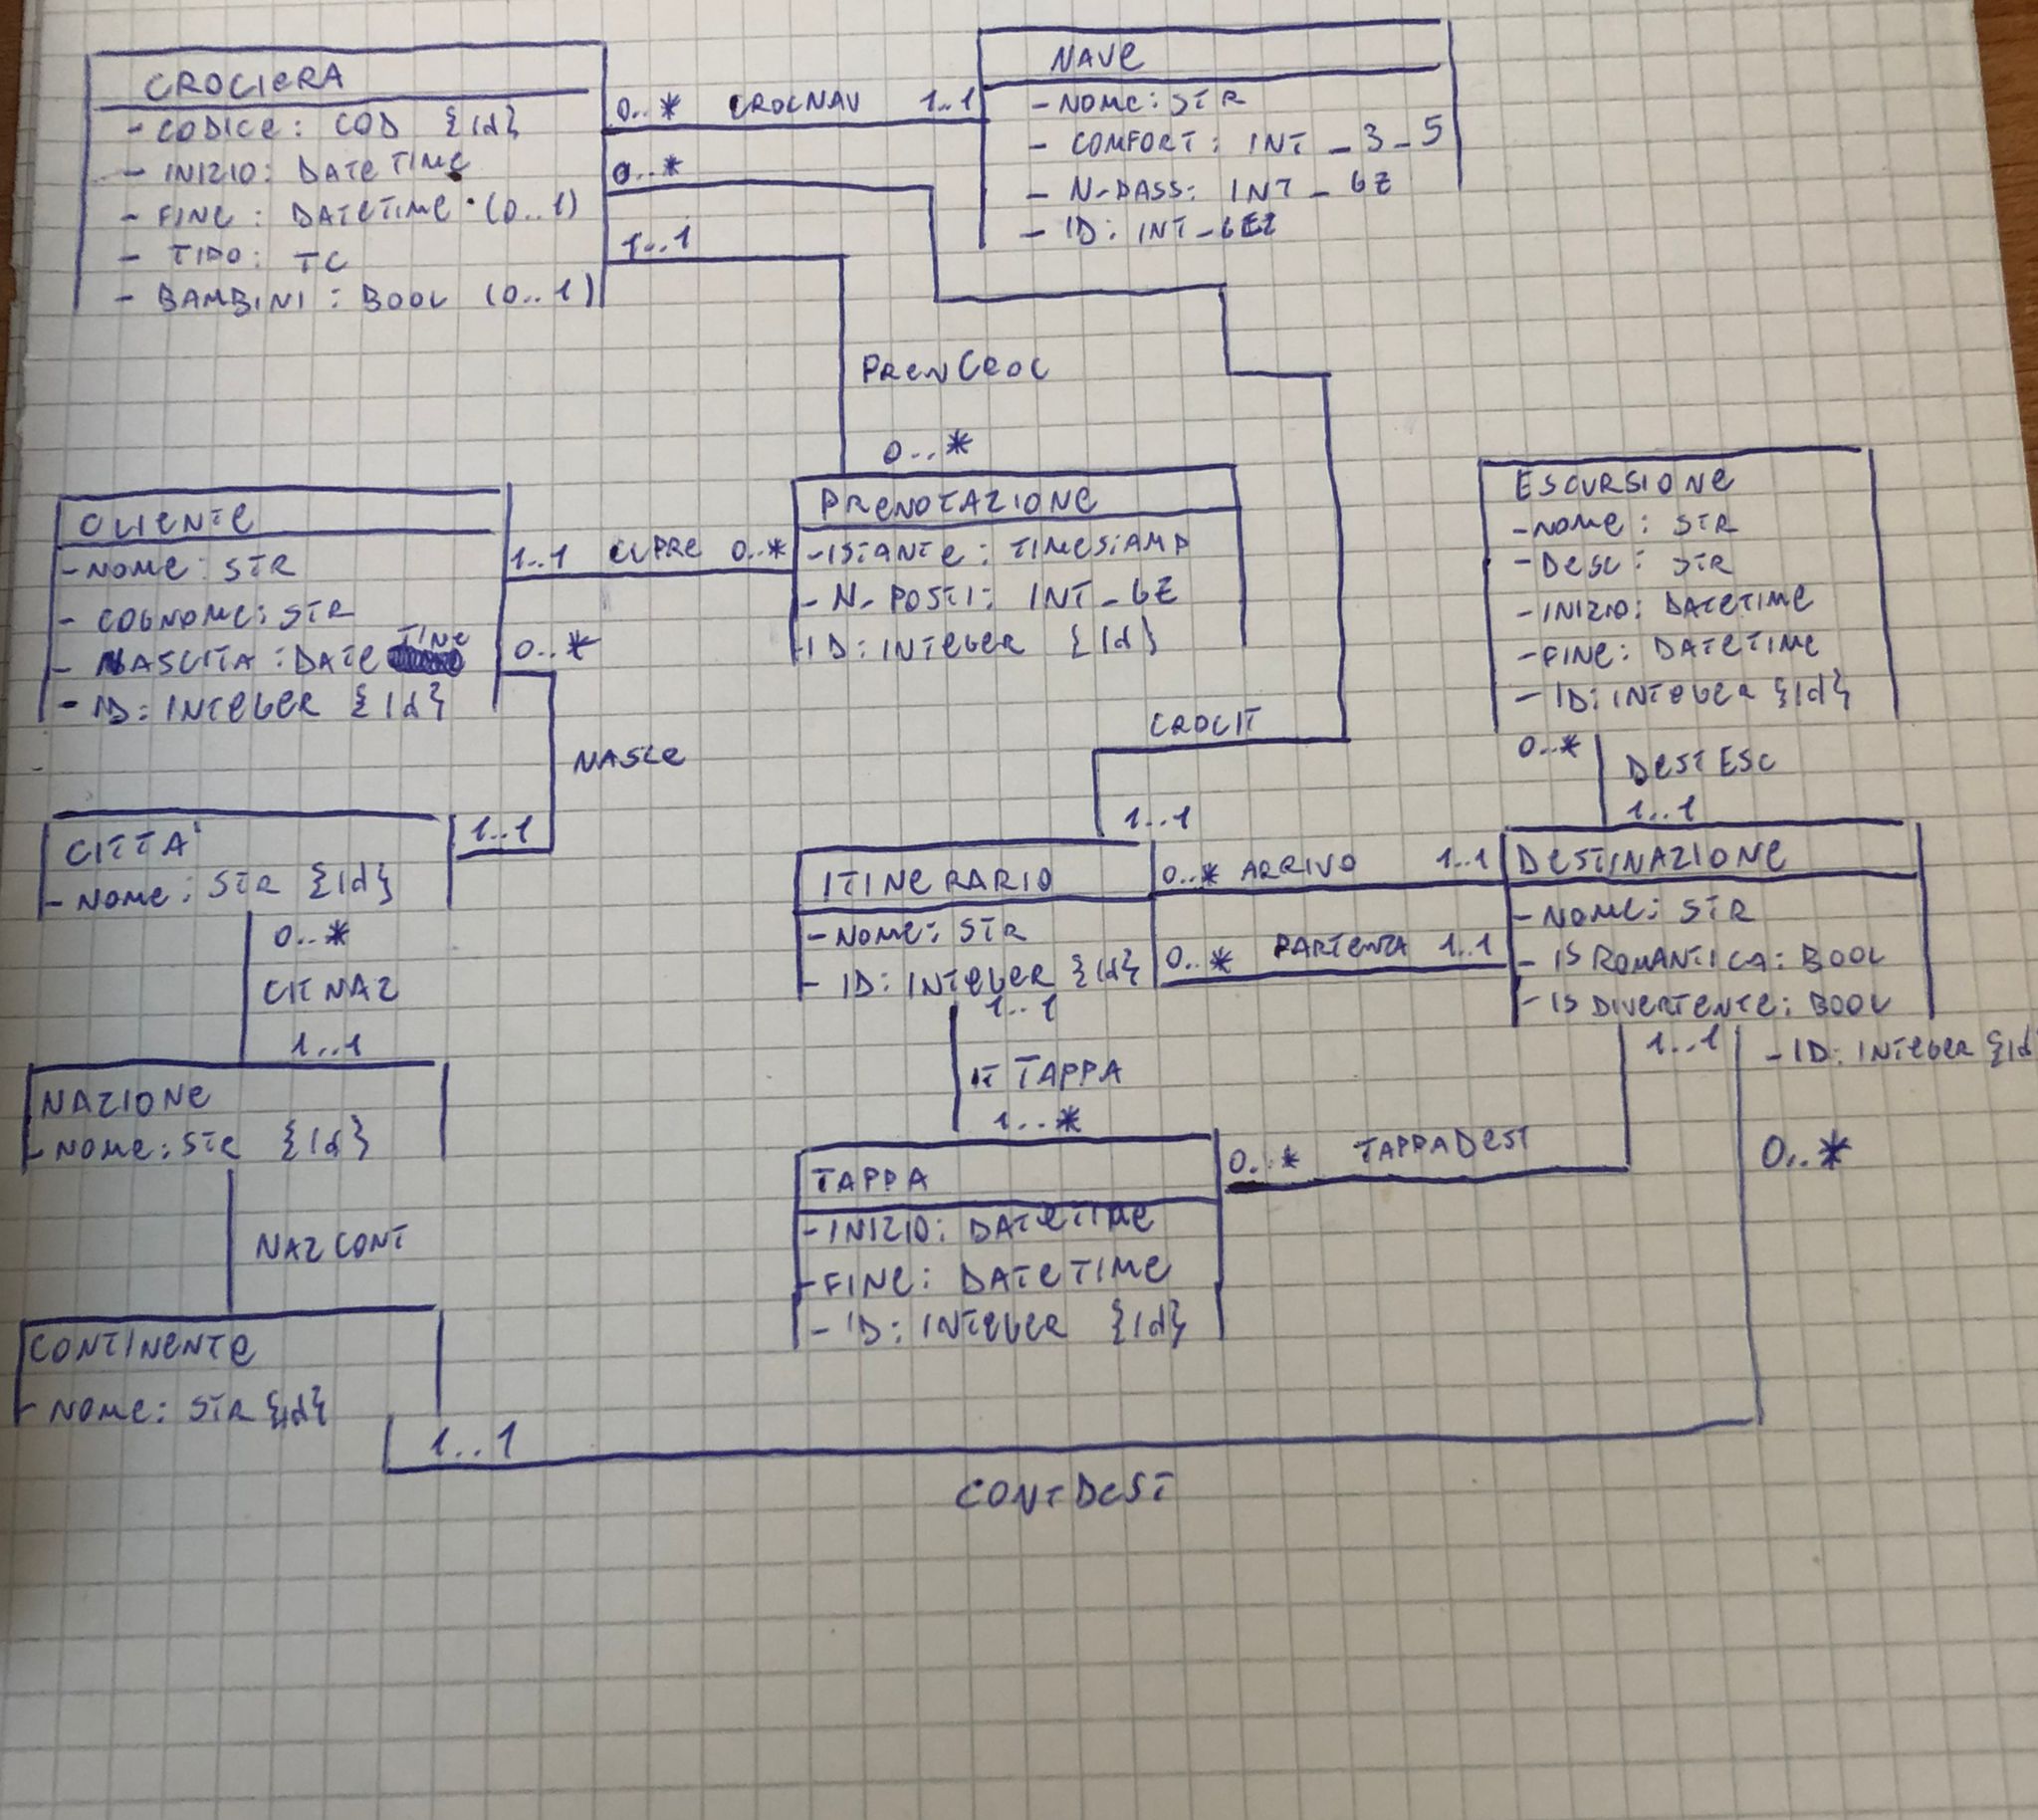 CROCIERA
- CODICE: COD {Id}
- INIZIO: DATETIME
- FINE: DATETIME (0..1)
- TIPO: TC
- BAMBINI: BOOL (0..1)
0..* CROCNAV 1..1
0..*
1..1
NAVE
- NOME: STR
- COMFORT: INT_3_5
- N-PASS: INT_GZ
- ID:
PRENCROC
0..*
CLIENTE
- NOME: STR
- COGNOME: STR
- NASCITA: DATETIME
- ID: INTEGER {Id}
1..1 CLPRE 0..*
0..*
PRENOTAZIONE
- ISTANTE: TIMESTAMP
- N-POSTI: INT_GZ
- ID: INTEGER {Id}
ESCURSIONE
- NOME: STR
- DESC: STR
- INIZIO: DATETIME
- FINE: DATETIME
- ID: INTEGER {Id}
NASCE
CROCIT
0..* DESTESC
1..1
1..1
1..1
CITTA'
- NOME: STR {Id}
0..*
CITNAZ
1..1
ITINERARIO
- NOME: STR
- ID: INTEGER {Id}
0..* ARRIVO 1..1
0..* PARTENZA 1..1
DESTINAZIONE
- NOME: STR
- IS ROMANTICA: BOOL
- IS DIVERTENTE: BOOL
- ID: INTEGER {Id
1..1
IT TAPPA
1..*
1..1
0..*
NAZIONE
- NOME: STR {Id}
NAZCONT
TAPPA
- INIZIO: DATETIME
- FINE: DATETIME
- ID: INTEGER {Id}
0..* TAPPADEST
CONTINENTE
- NOME: STR {Id}
1..1
CONTDEST